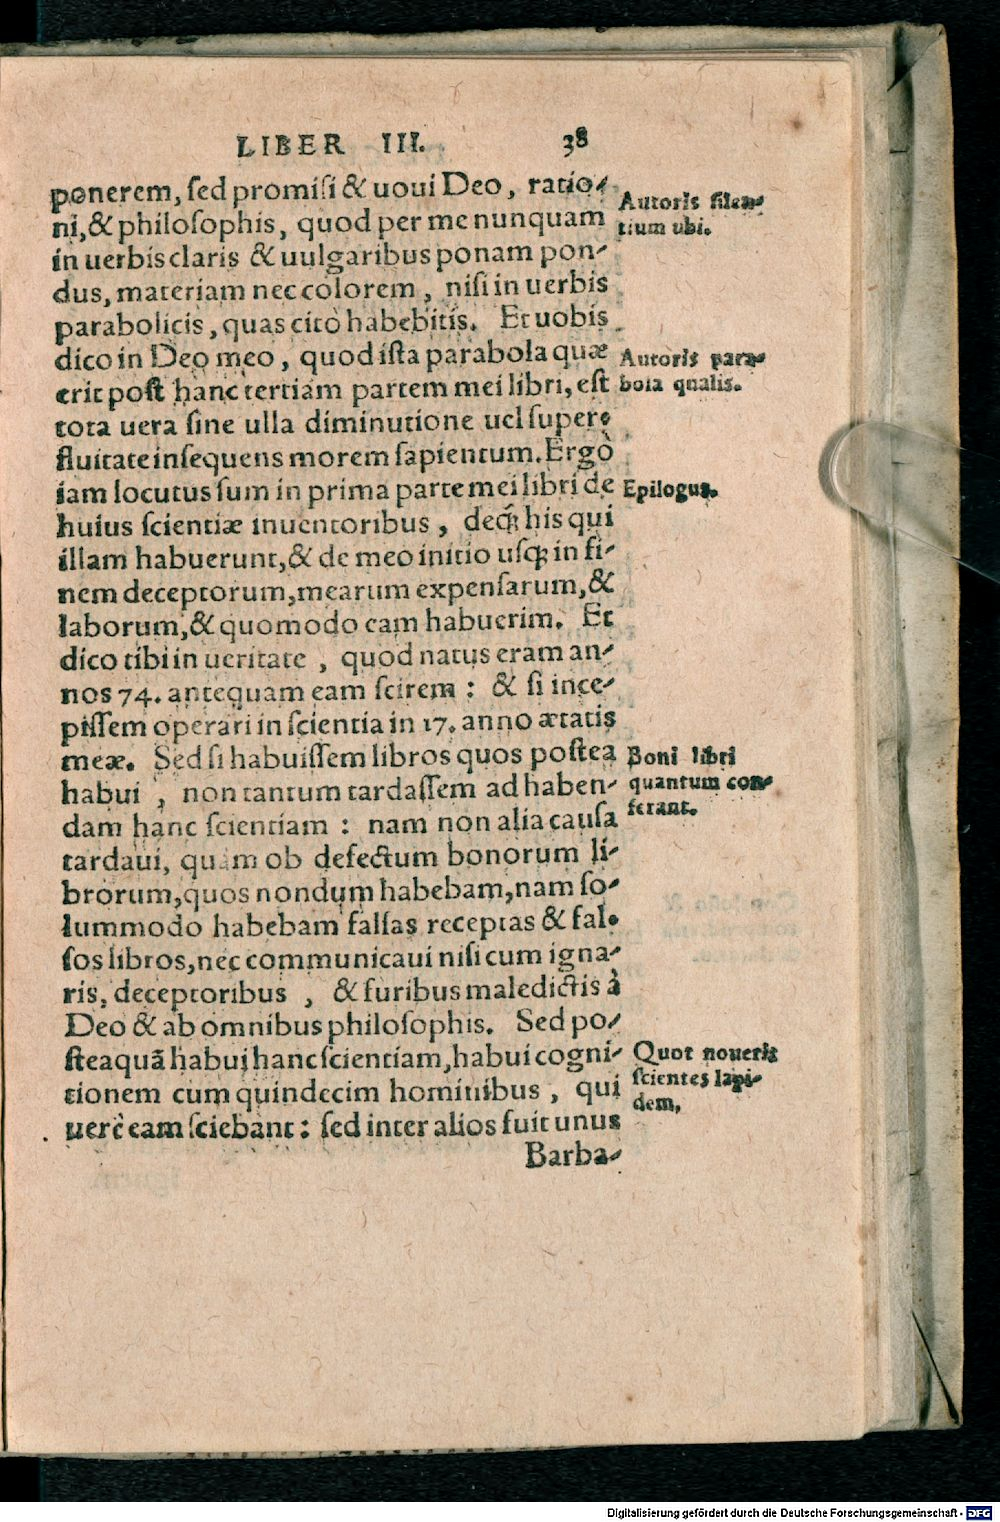 LIBER III. 38
ponerem, ſed promiſi & uoui Deo, ratio-
ni, & philoſophis, quod per me nunquam
in uerbis claris & uulgaribus ponam pon-
dus, materiam nec colorem, niſi in uerbis
parabolicis, quas citò habebitis. Et uobis
dico in Deo meo, quod iſta parabola quæ
erit poſt hanc tertiam partem mei libri, eſt
tota uera ſine ulla diminutione uel ſuper-
fluitate inſequens morem ſapientum. Ergò
iam locutus ſum in prima parte mei libri de
huius ſcientiæ inuentoribus, deq́; his qui
illam habuerunt, & de meo initio uſq; in fi-
nem deceptorum, mearum expenſarum, &
laborum, & quomodo eam habuerim. Et
dico tibi in ueritate, quod natus eram an-
nos 74. antequam eam ſcirem: & ſi ince-
piſſem operari in ſcientia in 17. anno ætatis
meæ. Sed ſi habuiſſem libros quos poſtea
habui, non tantum tardaſſem ad haben-
dam hanc ſcientiam: nam non alia cauſa
tardaui, quàm ob defectum bonorum li-
brorum, quos nondum habebam, nam ſo-
lummodo habebam falſas receptas & fal-
ſos libros, nec communicaui niſi cum igna-
ris, deceptoribus, & furibus maledictis à
Deo & ab omnibus philoſophis. Sed po-
ſteaquã habui hanc ſcientiam, habui cogni-
tionem cum quindecim hominibus, qui
uerè eam ſciebant: ſed inter alios fuit unus
Barba-
Autoris ſilen-
tium ubi.
Autoris para-
bola qualis.
Epilogus.
Boni libri
quantum con-
ferant.
Quot noueris
ſcientes lapi-
dem.
Digitalisierung gefördert durch die Deutsche Forschungsgemeinschaft - DFG